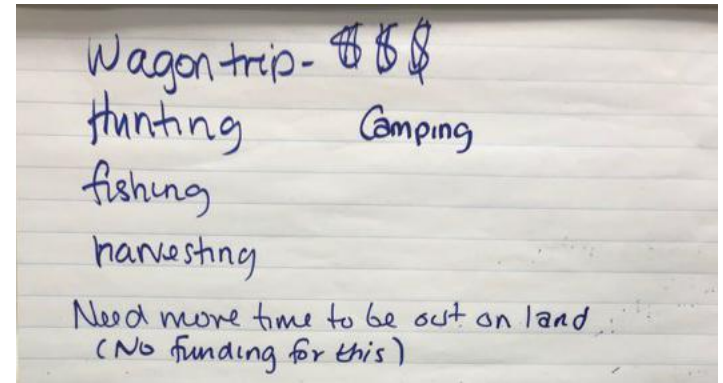 Wagon trip - $ $ $
Hunting Camping
fishing
harvesting
Need more time to be out on land
(No funding for this)